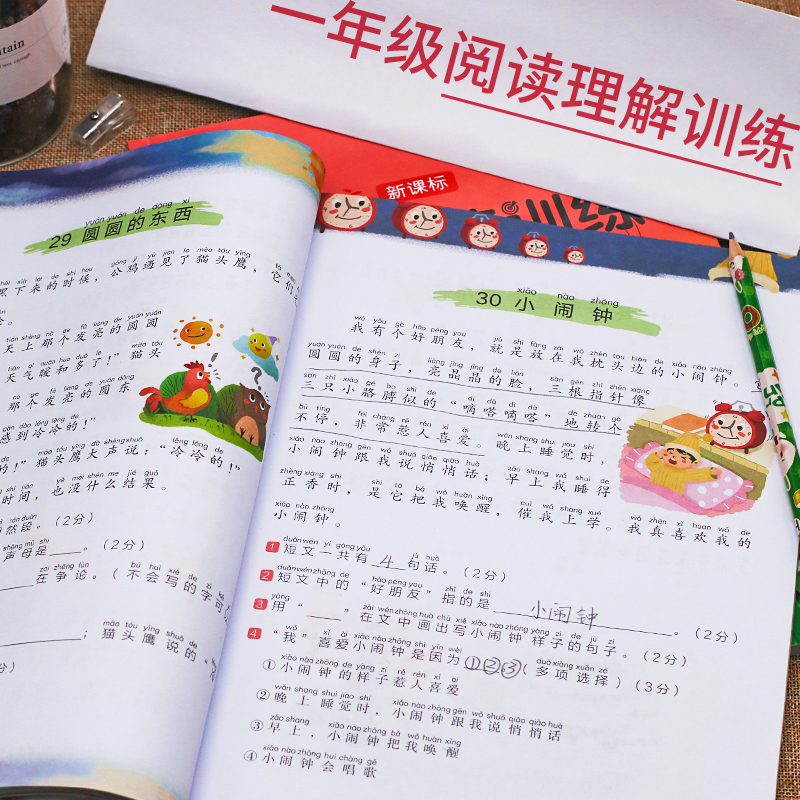 一年级阅读理解训练
新课标
训练
yuán yuán de dōng xi
29 圆圆的东西
黑下来的时候，公鸡遇见了猫头鹰，它们
天上那个发亮的圆圆
天气暖和多了！”猫头
那个发亮的圆东
感到冷冷的！”
的！”猫头鹰大声说：“冷冷的！”
时间，也没什么结果。
然段。（2分）
声母是___。（2分）
在争论。（不会写的字可
；猫头鹰说的“
xiǎo nào zhōng
30 小闹钟
我有个好朋友，就是放在我枕头边的小闹钟。
圆圆的身子，亮晶晶的脸，三根指针像
三只小胳膊似的“嘀嗒嘀嗒”地转个
不停，非常惹人喜爱。晚上睡觉时，
小闹钟跟我说悄悄话；早上我睡得
正香时，是它把我唤醒，催我上学。我真喜欢我的
小闹钟。
1 短文一共有 4 句话。（2分）
2 短文中的“好朋友”指的是 小闹钟 。（2分）
3 用“___”在文中画出写小闹钟样子的句子。（2分）
4 “我”喜爱小闹钟是因为 ①②③（多项选择）（3分）
①小闹钟的样子惹人喜爱
②晚上睡觉时，小闹钟跟我说悄悄话
③早上，小闹钟把我唤醒
④小闹钟会唱歌